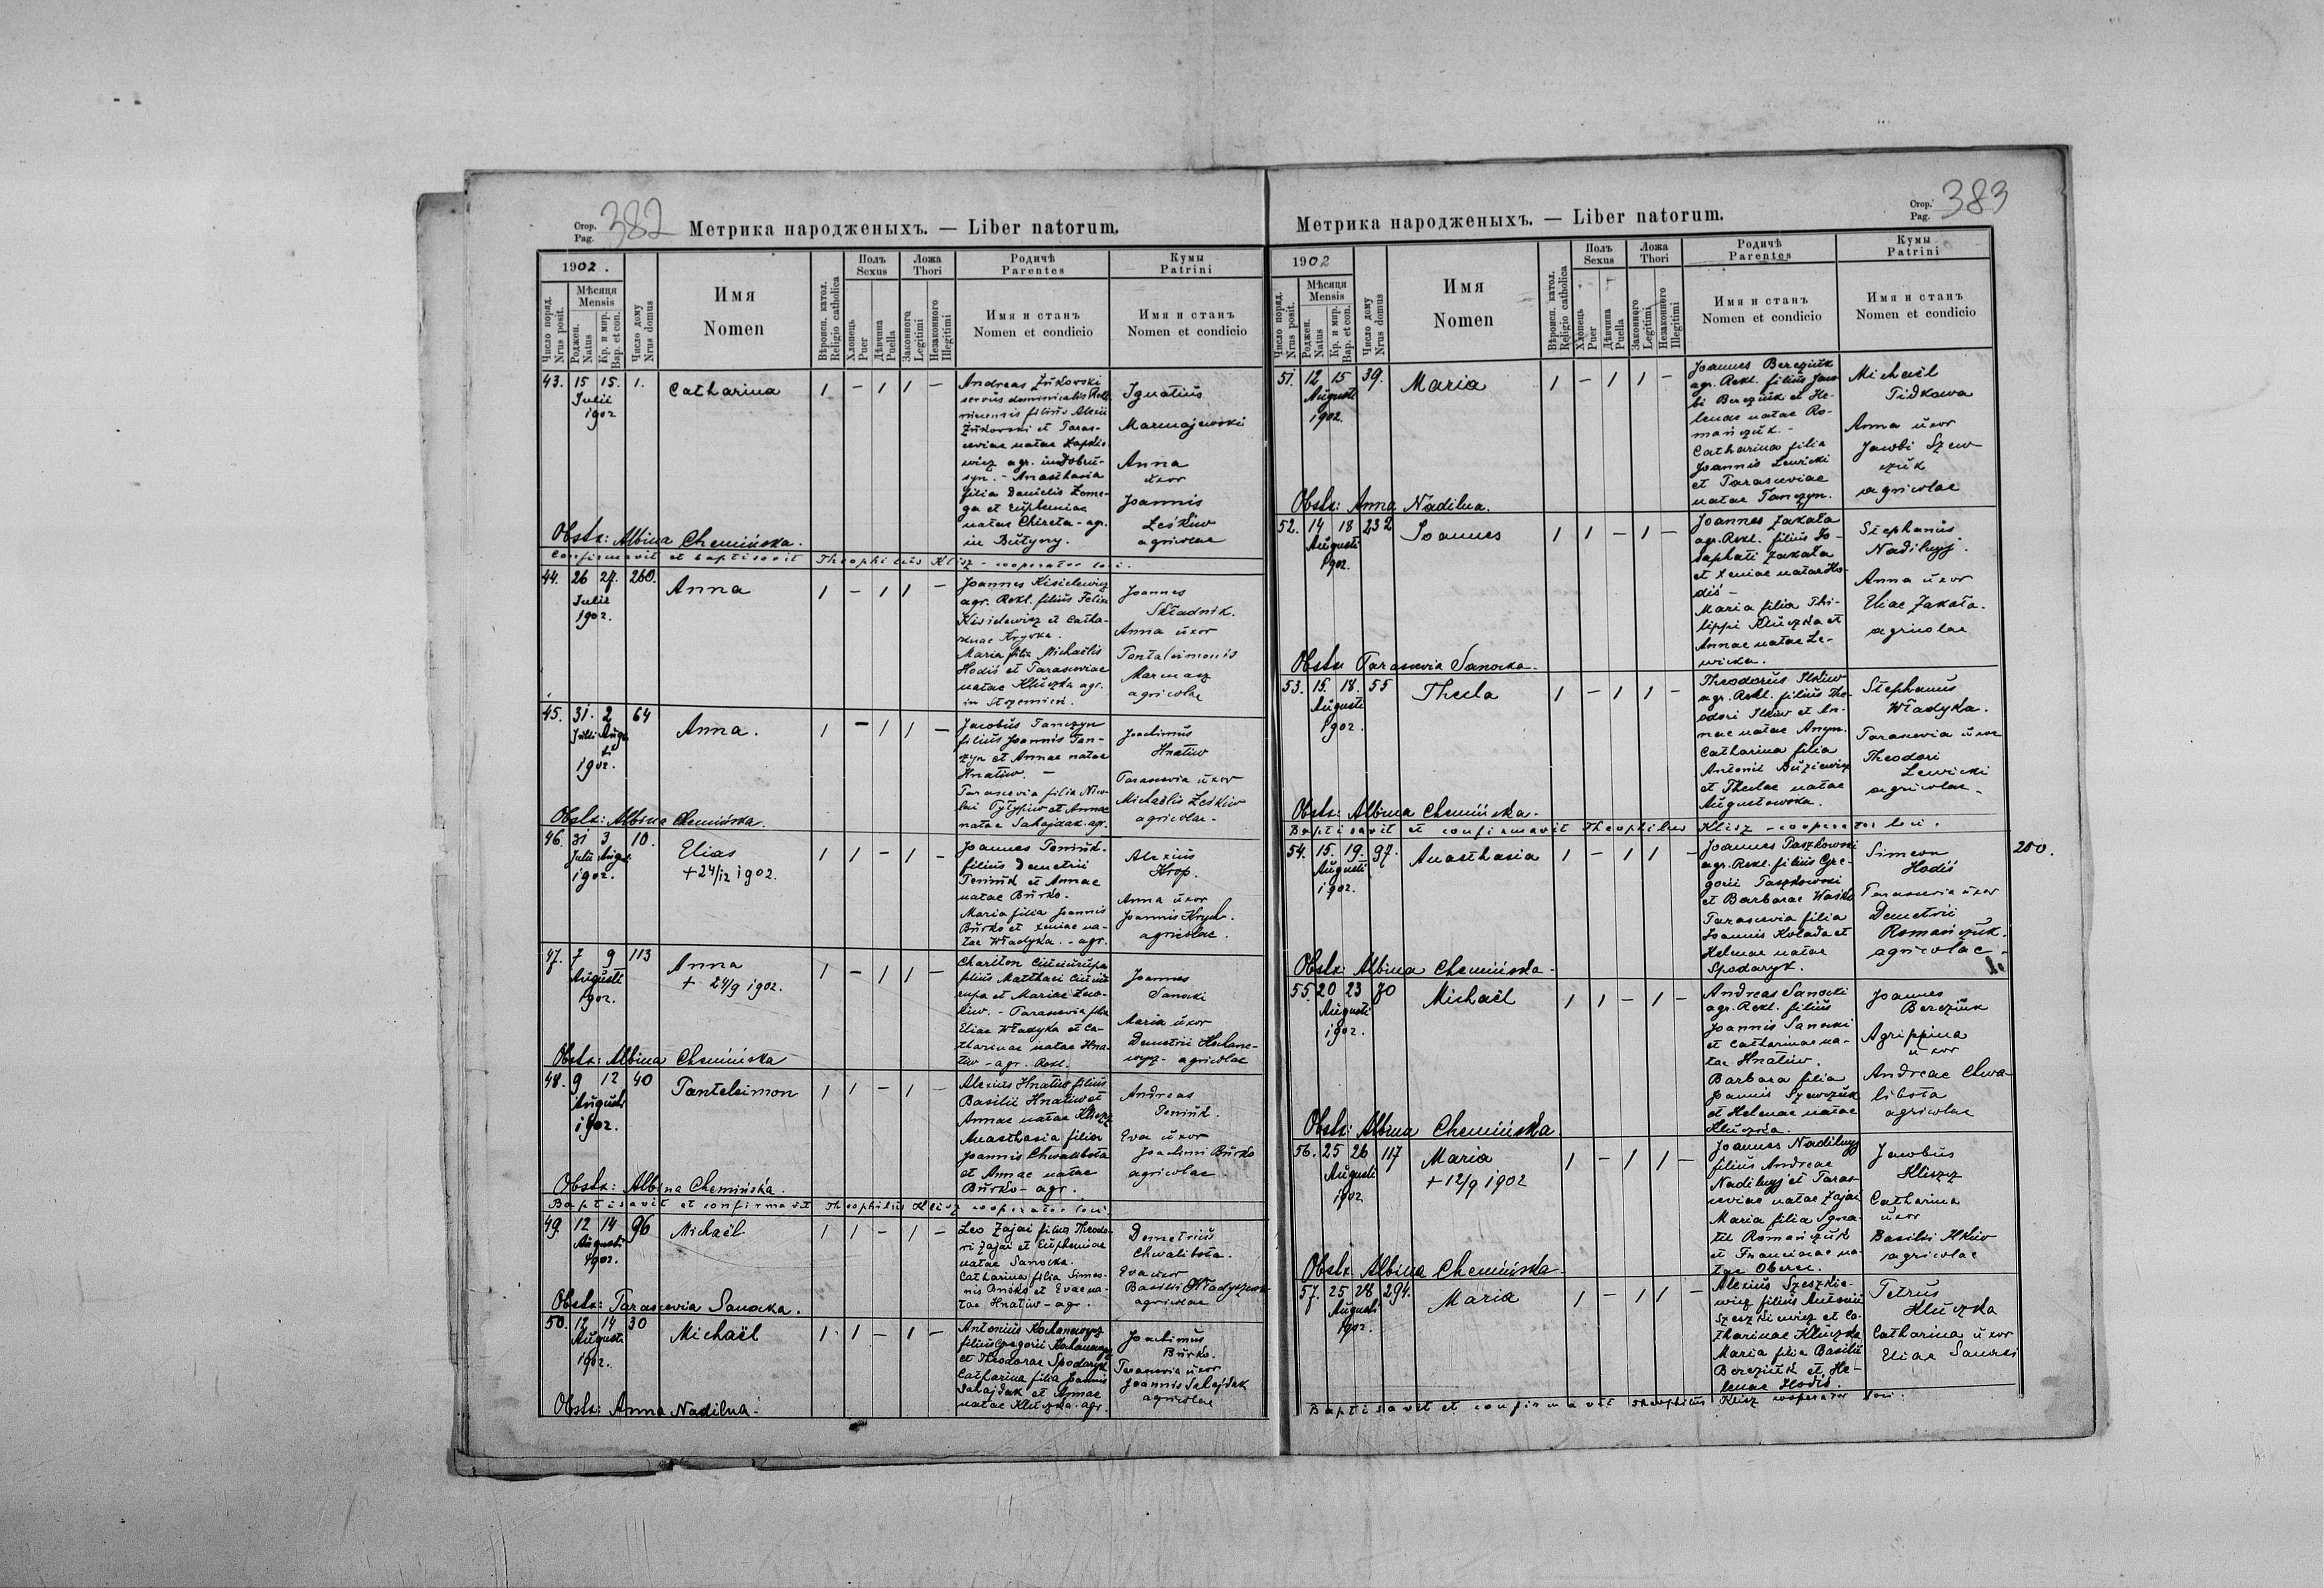 Стор.
Pag.
382
Метрика народженыхъ. — Liber natorum.
1902.
Число поряд.
Nrus posit.
Мѣсяця
Mensis
Роджен.
Natus
Кр. и мир.
Bap. et con.
Число дому
Nrus domus
Имя
Nomen
Вѣроисп. катол.
Religio catholica
Полъ
Sexus
Хлопець
Puer
Дѣвчина
Puella
Ложа
Thori
Законного
Legitimi
Незаконного
Illegitimi
Родичѣ
Parentes
Имя и станъ
Nomen et condicio
Кумы
Patrini
Имя и станъ
Nomen et condicio
43. 15 15. 1. Catharina 1 - 1 1 -
Julii
1902
Andreas Żukowski
servus dominicalis
filius Alexii
Żukowski et Paras-
ceviae natae
agr. in Dobru-
syn. - Anasthasia
filia Danielis
et Eupheniae
natae Chireta - agr.
in Butyny.
Ignatius
Marmajewski
Anna
uxor
Joannis
Leśkiw
agricolae
Obstx: Albina Chemińska.
Confirmavit et baptisavit Theophilus Klisz - cooperator loci.
44. 26 27. 260. Anna 1 - 1 1 -
Julii
1902.
Joannes Kisielewicz
agr. Rekl. filius Felix
Kisielewicz et Catha-
rinae
Maria filia Michaëlis
Hodiś et Parasceviae
natae Kluczka agr.
in
Joannes
Składnik.
Anna uxor
Pantaleimonis
Marmasz
agricolae
45. 31. 2 64 Anna. 1 - 1 1 -
Julii Augu-
sti
1902.
Jacobus Panczyn
filius Joannis Pan-
czyn et Annae natae
Hnatiw. -
Parascevia filia Nico-
lai et Annae
natae Sahajdak agr.
Joachimus
Hnatiw
Parascevia uxor
Michaëlis Leśkiw
agricolae.
Obstx: Albina Chemińska.
46. 31 3 10. Elias 1 1 - 1 -
Julii Augu.
1902.
+ 24/12 1902.
Joannes Peniuk
filius Demetrii
Peniuk et Annae
natae Burko.
Maria filia Joannis
Burko et Xeniae na-
tae Władyka. - agr.
Alexius
Krop.
Anna uxor
Joannis
agricolae.
47. 7 9 113 Anna 1 - 1 1 -
Augusti
1902.
+ 24/9 1902.
Chariton
filius Matthaei
et Mariae
Parascevia filia
Eliae Władyka et Ca-
tharinae natae Hna-
tiw - agr. Rekl.
Joannes
Sanocki
Maria uxor
Demetrii Kochane-
wycz - agricolae
Obstx: Albina Chemińska
48. 9 12 40 Panteleimon 1 1 - 1 -
Augusti
1902.
Alexius Hnatiw filius
Basilii Hnatiw et
Annae natae Kliszcz
Anasthasia filia
Joannis Chwalibota
et Annae natae
Burko - agr.
Andreas
Peniuk.
Eva uxor
Joachimi Burko
agricolae.
Obstx: Albina Chemińska.
Baptisavit et confirmavit Theophilus Klisz cooperator loci.
49. 12 14 96 Michaël 1 1 - 1 -
Augusti
1902.
Leo Zajai filius Theodo-
ri Zajai et Eupheniae
natae Sanocka.
Catharina filia Simeo-
nis et Evae na-
tae Hnatiw - agr.
Demetrius
Chwalibota.
Eva uxor
Basilii
agricolae
Obstx: Parascevia Sanocka.
50. 12 14 30 Michaël 1 1 - 1 -
Augusti
1902.
Antonius Kochanewycz
filius Gregorii Kochanewycz
et Theodorae Spodaryk
Catharina filia Joannis
Sahajdak et Annae
natae Kluczka. agr.
Joachimus
Burko.
Parascevia uxor
Joannis Sahajdak
agricolae
Obstx: Anna Nadilna.
Стор.
Pag.
383
Метрика народженыхъ. — Liber natorum.
1902
Число поряд.
Nrus posit.
Мѣсяця
Mensis
Роджен.
Natus
Кр. и мир.
Bap. et con.
Число дому
Nrus domus
Имя
Nomen
Вѣроисп. катол.
Religio catholica
Полъ
Sexus
Хлопець
Puer
Дѣвчина
Puella
Ложа
Thori
Законного
Legitimi
Незаконного
Illegitimi
Родичѣ
Parentes
Имя и станъ
Nomen et condicio
Кумы
Patrini
Имя и станъ
Nomen et condicio
51. 12 15 39. Maria 1 - 1 1 -
Augusti
1902.
Joannes Bereziuk
agr. Rekl. filius Jaco-
bi Bereziuk et He-
lenae natae Ro-
mańczuk. -
Catharina filia
Joannis Lewicki
et Parasceviae
natae Panczyn.
Michaël
Pidkowa
Anna uxor
Jacobi Szew-
czuk
agricolae
Obstx: Anna Nadilna.
52. 14 18 232 Joannes 1 1 - 1 -
Augusti
1902.
Joannes Zakała
agr. Rekl. filius Jo-
saphati Zakała
et Xeniae natae Ho-
diś -
Maria filia Phi-
lippi Kluczka et
Annae natae Le-
wicka.
Stephanus
Nadilnyj.
Anna uxor
Eliae Zakała.
agricolae
Obstx Parascevia Sanocka.
53. 15. 18. 55 Thecla 1 - 1 1 -
Augusti
1902.
Theodorus Ilkiw
agr. Rekl. filius The-
odori Ilkiw et An-
nae natae
Catharina filia
Antonii Buziewicz
et Theclae natae
Augustowska.
Stephanus
Władyka.
Parascevia uxor
Theodori
Lewicki
agricolae.
Obstx: Albina Chemińska.
Baptisavit et confirmavit Theophilus Klisz - cooperator loci.
54. 15. 19. 97. Anasthasia 1 - 1 1 -
Augusti
1902.
Joannes Paszkowski
agr. Rekl. filius Gre-
gorii Paszkowski
et Barbarae Waśko
Parascevia filia
Joannis Kolada et
Helenae natae
Spodaryk.
Simeon
Hodiś
Parascevia uxor
Demetrii
Romańczuk.
agricolae.
200.
Obstx: Albina Chemińska.
55. 20 23 70 Michaël 1 1 - 1 -
Augusti
1902.
Andreas Sanocki
agr. Rekl. filius
Joannis Sanocki
et Catharinae na-
tae Hnatiw.
Barbara filia
Joannis Szewczuk
et Helenae natae
Kluczka.
Joannes
Bereziuk
Agrippina
uxor
Andreae Chwa-
libota
agricolae
Obstx: Albina Chemińska
56. 25 26 117 Maria 1 - 1 1 -
Augusti
1902
+ 12/9 1902
Joannes Nadilnyj
filius Andreae
Nadilnyj et Paras-
ceviae natae Zajai
Maria filia Igna-
tii Romańczuk
et Franciscae na-
tae Oberc.
Jacobus
Kliszcz
Catharina
uxor
Basilii Ilkiw
agricolae
Obstx Albina Chemińska
57. 25 28 294. Maria 1 - 1 1 -
Augusti
1902.
Alexius Szeszkie-
wicz filius Antonii
Szeszkiewicz et Ca-
tharinae Kluczka
Maria filia Basilii
Bereziuk et He-
lenae Hodiś.
Petrus
Kluczka
Catharina uxor
Eliae Sanocki
Baptisavit et confirmavit Theophilus Klisz cooperator loci.